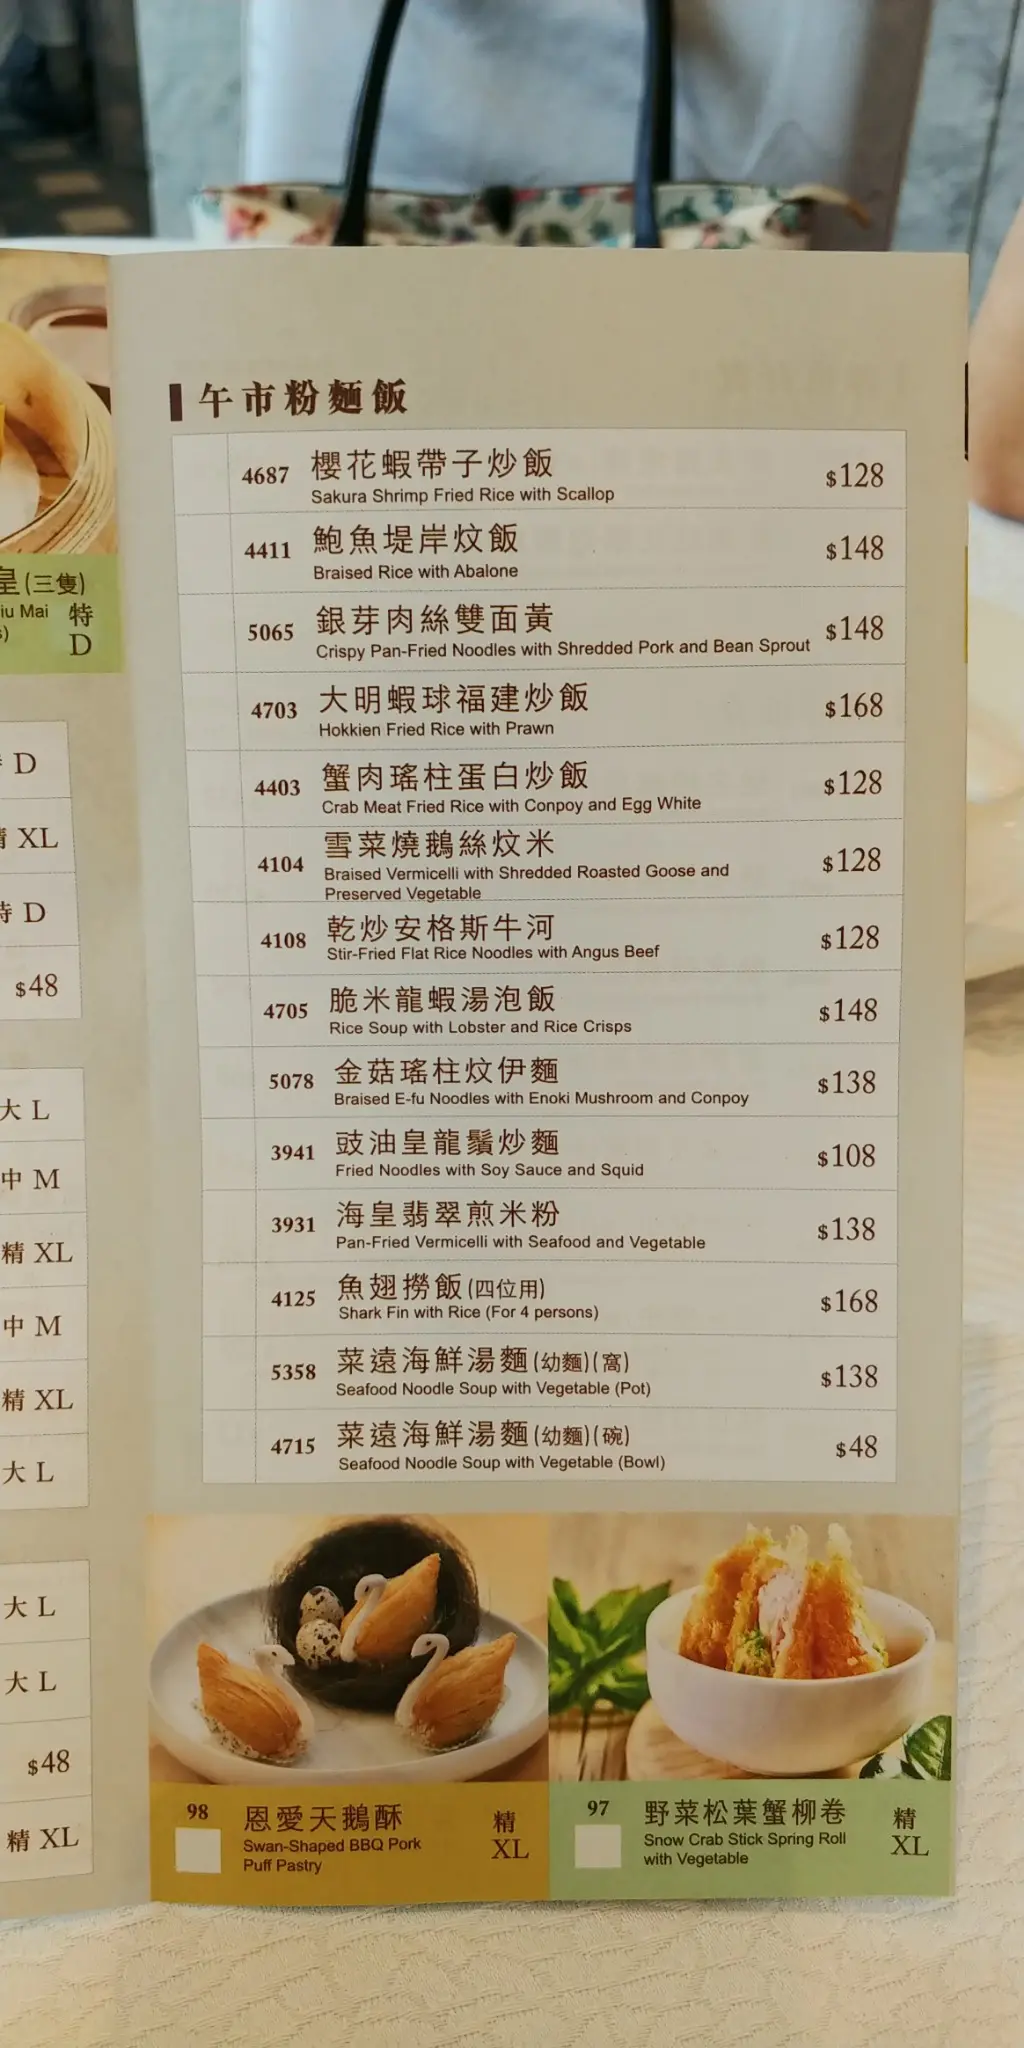 皇(三隻)
iu Mai
特
D
D
精 XL
特 D
$48
大 L
中 M
精 XL
中 M
精 XL
大 L
大 L
大 L
$48
精 XL
午市粉麵飯
4687 櫻花蝦帶子炒飯 $128
Sakura Shrimp Fried Rice with Scallop
4411 鮑魚堤岸炆飯 $148
Braised Rice with Abalone
5065 銀芽肉絲雙面黃 $148
Crispy Pan-Fried Noodles with Shredded Pork and Bean Sprout
4703 大明蝦球福建炒飯 $168
Hokkien Fried Rice with Prawn
4403 蟹肉瑤柱蛋白炒飯 $128
Crab Meat Fried Rice with Conpoy and Egg White
4104 雪菜燒鵝絲炆米 $128
Braised Vermicelli with Shredded Roasted Goose and
Preserved Vegetable
4108 乾炒安格斯牛河 $128
Stir-Fried Flat Rice Noodles with Angus Beef
4705 脆米龍蝦湯泡飯 $148
Rice Soup with Lobster and Rice Crisps
5078 金菇瑤柱炆伊麵 $138
Braised E-fu Noodles with Enoki Mushroom and Conpoy
3941 豉油皇龍鬚炒麵 $108
Fried Noodles with Soy Sauce and Squid
3931 海皇翡翠煎米粉 $138
Pan-Fried Vermicelli with Seafood and Vegetable
4125 魚翅撈飯(四位用) $168
Shark Fin with Rice (For 4 persons)
5358 菜遠海鮮湯麵(幼麵)(窩) $138
Seafood Noodle Soup with Vegetable (Pot)
4715 菜遠海鮮湯麵(幼麵)(碗) $48
Seafood Noodle Soup with Vegetable (Bowl)
98 恩愛天鵝酥 精
Swan-Shaped BBQ Pork XL
Puff Pastry
97 野菜松葉蟹柳卷 精
Snow Crab Stick Spring Roll XL
with Vegetable